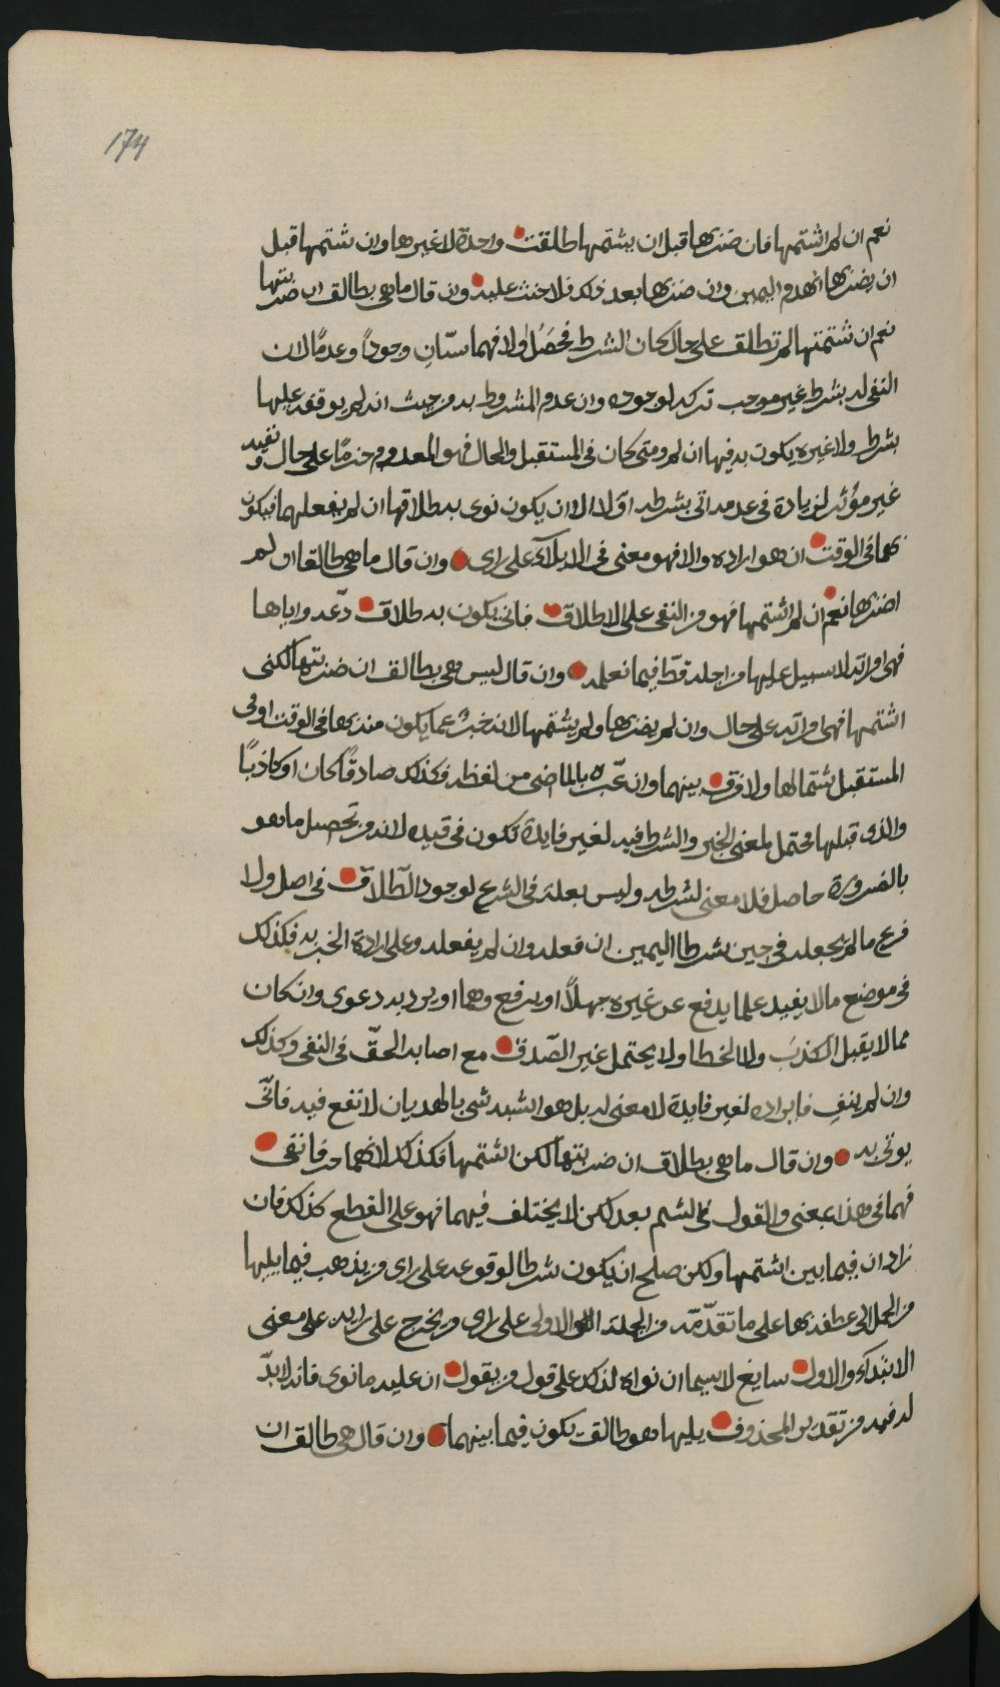 174
نعم ان لم اشتمها فان ضربها قبل ان يشتمها طلقت واحدة لا غيرها وان شتمها قبل
ان يضربها انهدم اليمين وان ضربها بعد ذلك فلا حنث عليه وان قال ما هي بطالق ان ضربتها
نعم ان شتمتها لم تطلق على حال كان الشرط فحصل أولا فهما سيّان وجوداً وعدمًا لان
النفى له بشرط غير موجب تركه لوجوده وان عدم المشروط به من حيث انه لم يوقفه عليها
بشرط ولا غيره يكون به فيها ان لم ومتى كان فى المستقبل والحال فهو المعدوم جزمًا على حال
غير مؤثر لزيادة فى عدمه اتى بشرطه اوّلا الا ان يكون نوى به طلاقها ان لم يفعلهما فيكون
بهما فى الوقت ان هو اراده والا فهو معنى فى الايلآء على راى وان قال ما هى طالقا ان لم
اضربها نعم ان لم اشتمها فهو من النفى على الاطلاق فانى يكون به طلاق دعه واياها
فهى امراته لا سبيل عليها من اجله قطّ فيما نعلمه وان قال ليس هى بطالق ان ضربتها لكنى
اشتمها فهى امراته على حال وان لم يضربها ولم يشتمها لانه خبر عما يكون منه بها فى الوقت او فى
المستقبل شتما لها ولا فرق بينهما وان عبّره بالماضى من لفظه فكذلك صادقًا كان او كاذبًا
والذى قبلها محتمل لمعنى الخبر والشرط فيه لغير فايدة تكون فى قيده لانه من تحصيل ما هو
بالضرورة حاصل فلا معنى لشرطه وليس بعلة فى الشرع لوجود الطلاق فى اصل ولا
فرع ما لم يجعله فى حين شرطا اليمين ان فعله وان لم يفعله وعلى ارادة الخبر به فكذلك
فى موضع ما لا يفيد علما يدفع عن غيره جهلاً او يرفع وهما او يرد به دعوى وان كان
مما لا يقبل الكذب ولا الخطا ولا يحتمل غير الصّدق مع اصابه الحقّ فى النفى وكذلك
وان لم ينفِ فايراده لغير فايدة لا معنى له بل هو اشبه شى بالهديان لا نفع فيه فانّى
يوتى به وان قال ما هى بطلاق ان ضربتها لكن اشتمها فكذلك لانهما حرفا نفى
فهما فى هذا بمعنى والقول فى الشتم بعد لكن لا يختلف فيهما فهو على القطع كذلك فان
زاد ان فيما بين اشتمها ولكن صلح ان يكون شرطا لوقوعه على راى من يذهب فيما يليها
من الجمل الى عطفه بها على ما تقدّمه من الجملة الاولى على راى ويخرج على راى به على معنى
الابتدآء والاول سايغ لا سيما ان نواه لذلك على قول من يقول ان عليه ما نوى فانه لا بدّ
له فيه من تقدير المحذوف يليها وهو طالق يكون فيما بينهما وان قال هى طالق ان